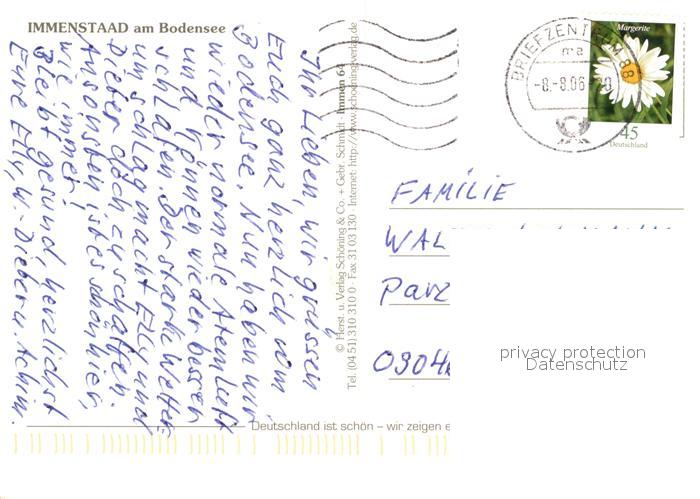 IMMENSTAAD am Bodensee
Ihr Lieben, wir grüssen
Euch ganz herzlich vom
Bodensee. Nun haben wir
wieder normale Atemluft
und können wieder besser
schlafen. Der starke Wetter-
umschlag macht Elly und
Dieter doch zu schaffen.
Ansonsten ist es schön hier,
wie immer!
Bleibt gesund, herzlichst
Eure Elly, W.-Dieter u. Achim.
© Herst. u. Verlag Schöning & Co. + Gebr. Schmidt · Immen 64
Tel. (04 51) 310 310 0 · Fax 31 03 130 · Internet: http://www.schoeningverlag.de
BRIEFZENTRUM 88
ma
-8.-8.06
Margerite
45
Deutschland
FAMILIE
WAL
Parz
0304
privacy protection
Datenschutz
Deutschland ist schön – wir zeigen e